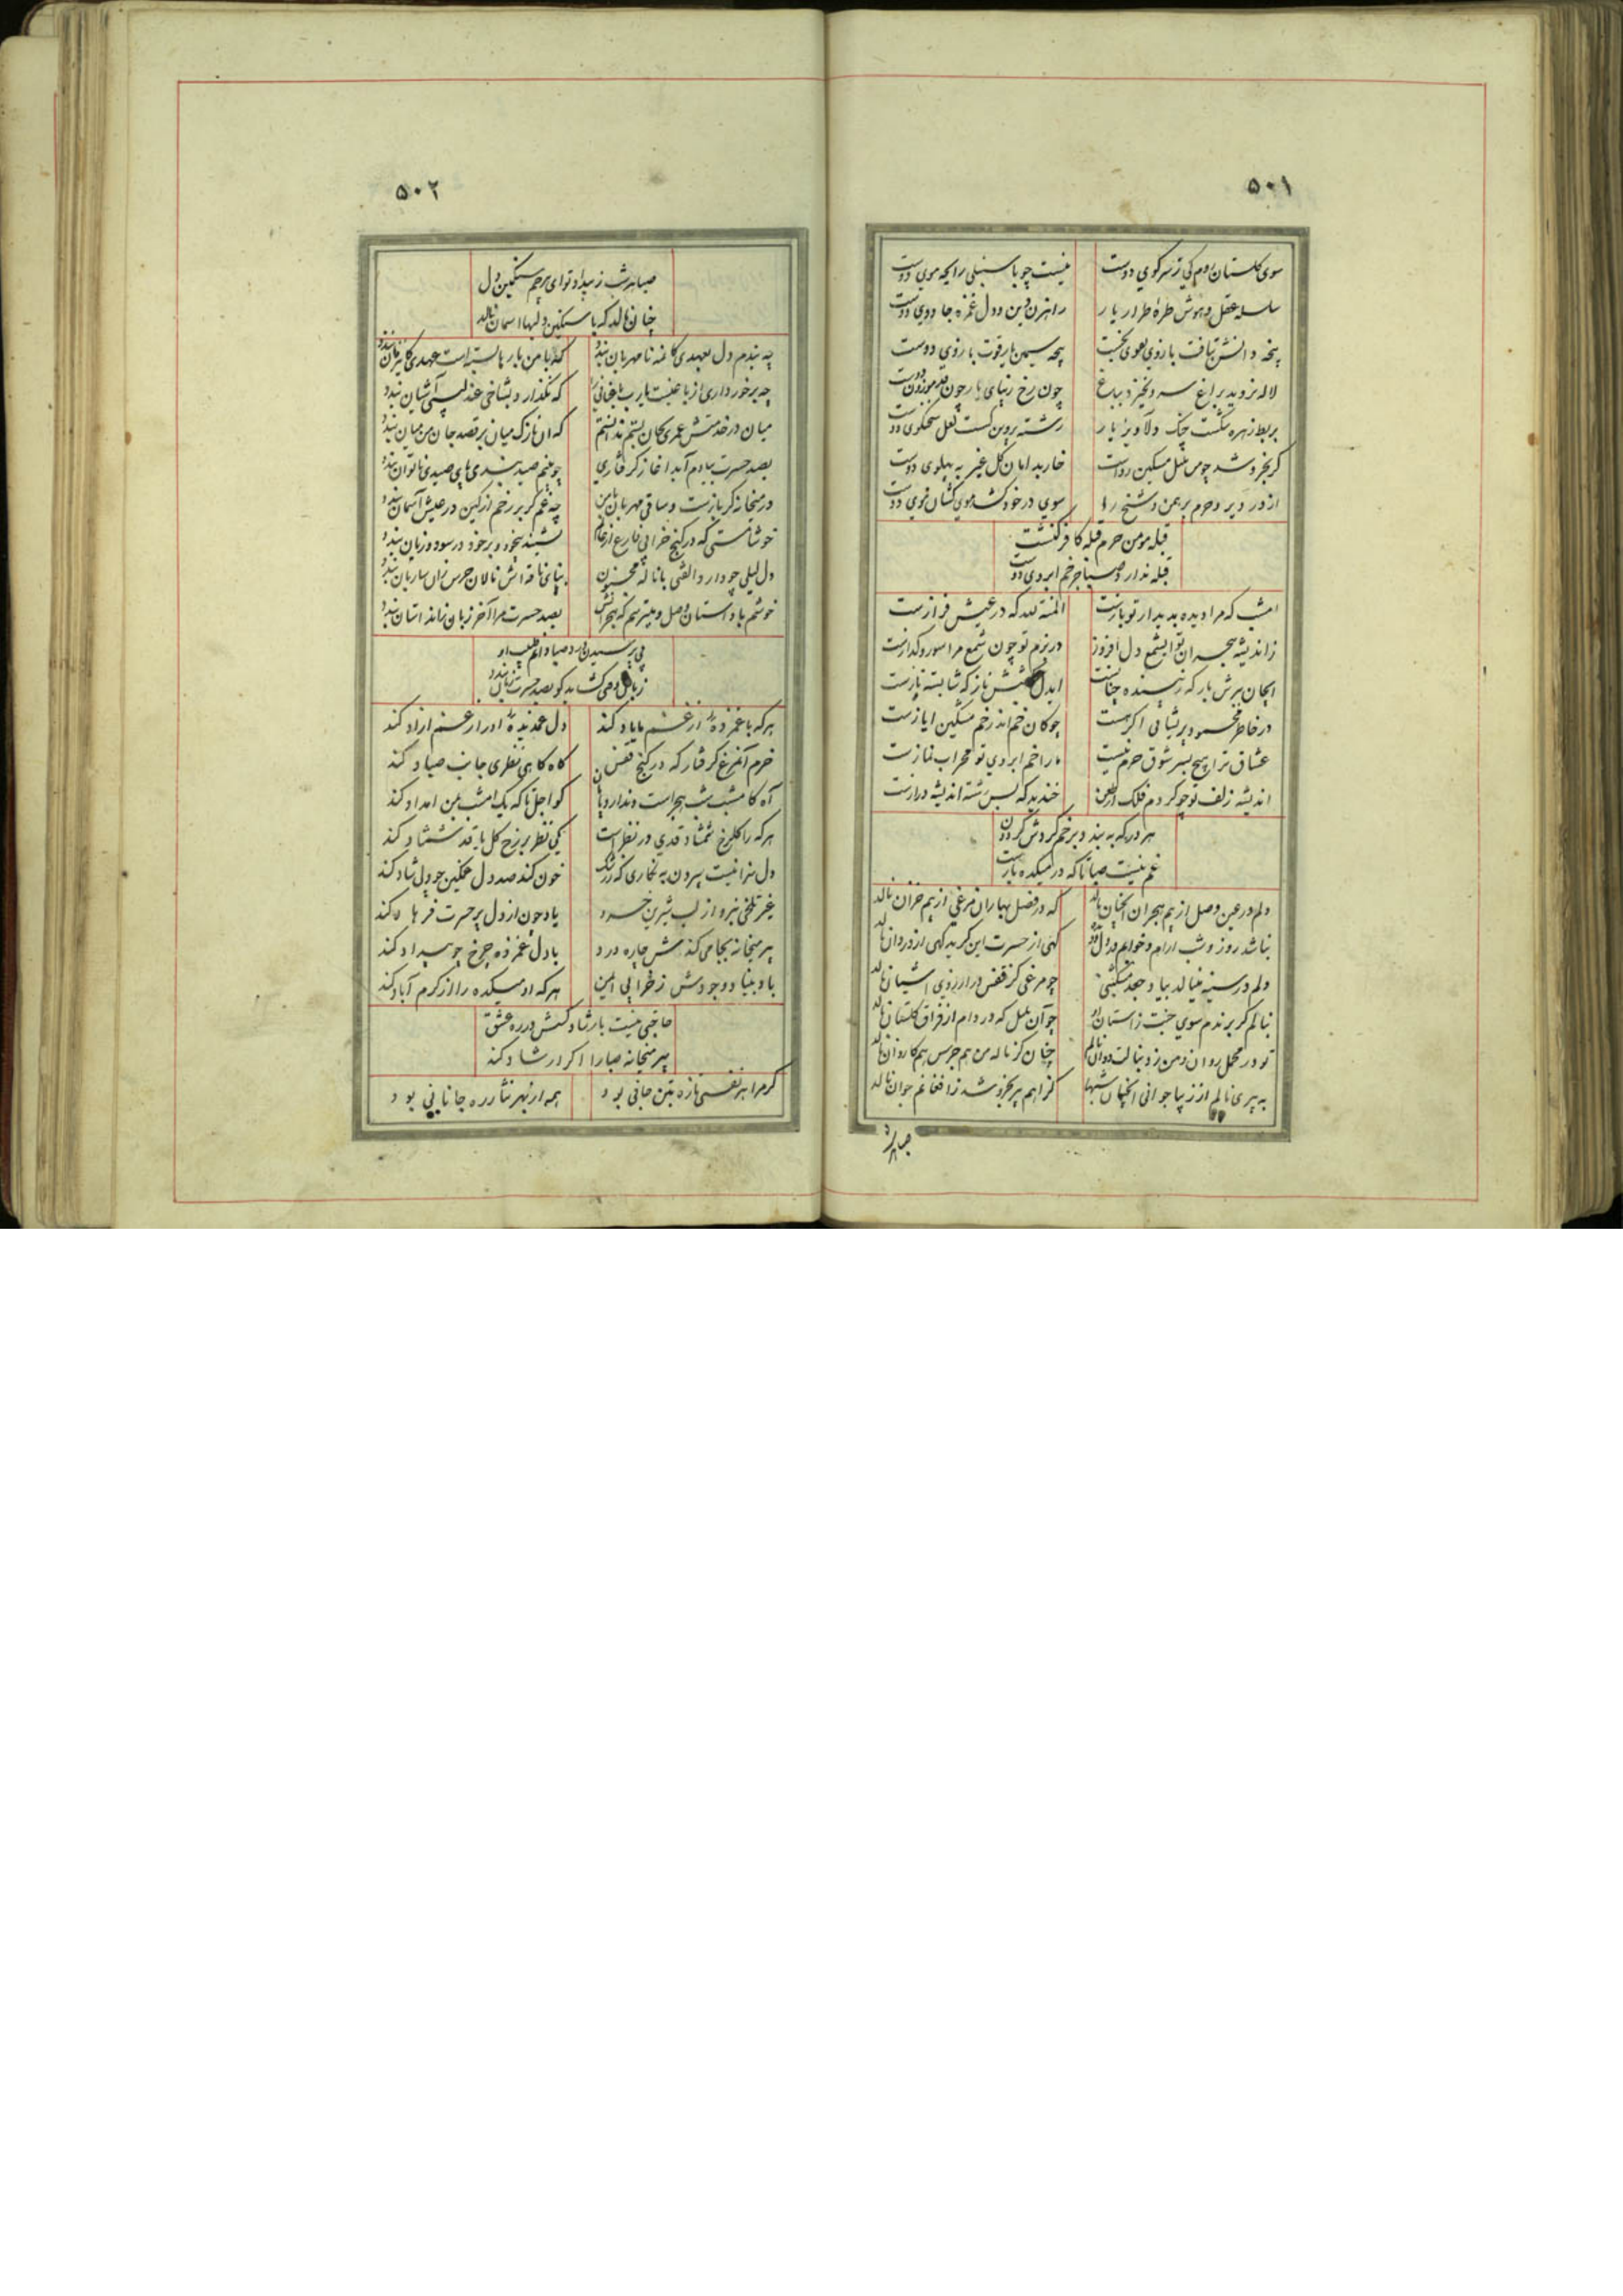 ۵۰۱
سوی گلستان روم کی ز سر کوی دوست نیست چو با سنبلی رایحه موی دوست
سلسله عقل و هوش طره طرار یار راهزن دین و دل غمزه جادوی دوست
پنجه دانش نتافت بازوی تقوی نخست پنجه سیمین یار قوت بازوی دوست
لاله نروید براغ سرو نخیزد بباغ چون رخ زیبای یار چون قد موزون دوست
بربط زهره شکست چنک دلاویز یار رشته پروین کسست لعل سخنگوی دوست
گر بخروشد چو من بلبل مسکین رواست خار بدامان گل غیر به پهلوی دوست
از در دیر و حرم برهمن و شیخ را سوی در خود کشد موی کشان خوی دوست
قبله مومن حرم قبله کافر کنشت
قبله ندارد صبا جز خم ابروی دوست
امشب که مرا دیده بدیدار تو بازست المنه لله که در عیش فرازست
زاندیشه هجران تو ایشمع دل افروز در بزم تو چون شمع مرا سوز و گدازست
ایجان ببرش بار که زیبنده چنانست ایدل بکشش ناز که شایسته نازست
در خاطر محمود پریشانی اگر هست چو کان خم اندر خم مشکین ایازست
عشاق ترا هیچ بسر شوق حرم نیست ما را خم ابروی تو محراب نمازست
اندیشه زلف تو چو کردم فلک از طعن خندید که بس رشته اندیشه درازست
هر در که به بندد برخم گردش گردون
غم نیست صبا تا که در میکده بازست
دلم در عین وصل از بیم هجران آنچنان نالد که در فصل بهاران مرغی از بیم خزان نالد
نباشد روز و شب آرام و خوابم گهی از حسرت این گرید گهی از درد آن نالد
دلم در سینه مینالد بیاد جعد مشکینی چو مرغی کز قفس در آرزوی آشیان نالد
بنالم گر برندم سوی جنت ز آستان او چو آن بلبل که در دام از فراق گلستان نالد
تو در محمل روان و من ز دنبالت دوان نالم چنان کز ناله من هم جرس هم کاروان نالد
به پیری نالم از زیبا جوانی آنچنان شبها کز آهم پیر بخروشد ز افغانم جوان نالد
صبا هر
۵۰۲
صبا هر شب ز بیداد تو ای بیرحم سنگین دل
چنان نالد که با سنگین دلیها آسمان نالد
چه بندم دل بعهدی کان مه نامهربان بندد که با من بارها بسته است عهدی کاین زمان بندد
چه برخورداری از باغیست یارب باغبانی را که نگذارد بشاخی عندلیبی آشیان بندد
میان در خدمتش عمری کمان بستم ندانستم که آن نازک میان بر قصد جان من میان بندد
بصد حسرت بیادم آید آغاز گرفتاری چو بینم صید بندی پای صیدی ناتوان بندد
در میخانه گر بازست و ساقی مهربان با من چه غم گر بر رخم از کین در عیش آسمان بندد
خوشا مستی که در کنج خرابی فارغ از عالم نشیند بیخود و بر خود در سود و زیان بندد
دل لیلی چو دارد الفتی با ناله مجنون بپای ناقه اش نالان جرس زان ساربان بندد
خوشم با داستان وصل و میترسم که هجرانش بصد حسرت مرا آخر زبان زان داستان بندد
پی پرسیدن درد صبا
زبان می گشاید کو بصد حسرت زبان بندد
هر که با غمزده از غم ما یاد کند دل غمدیده او را ز غم آزاد کند
خرم آنمرغ گرفتار که در کنج قفس گاه گاهی نظری جانب صیاد کند
آه کامشب شب هجراست و ندارد پایان کو اجل تا که یک امشب بمن امداد کند
هر که را گلرخ شمشاد قدی در نظر است کی نظر بر رخ گل یا قد شمشاد کند
دل سرا نیست بیرون به نگاری که ز رشک خون کند صد دل غمگین چو دلی شاد کند
غیر تلخی نبرد از لب شیرین خسرو یاد چون از دل پر حسرت فرهاد کند
پیر میخانه بجامی کندش چاره درد با دل غمزده چرخ چو بیداد کند
باد بنیاد وجودش ز خرابی ایمن هر که او میکده را از کرم آباد کند
حاجتی نیست بارشاد کسش در ره عشق
پیر میخانه صبا را اگر ارشاد کند
گر مرا هر نفسی تازه بتن جانی بود همه از بهر نثار ره جانانی بود